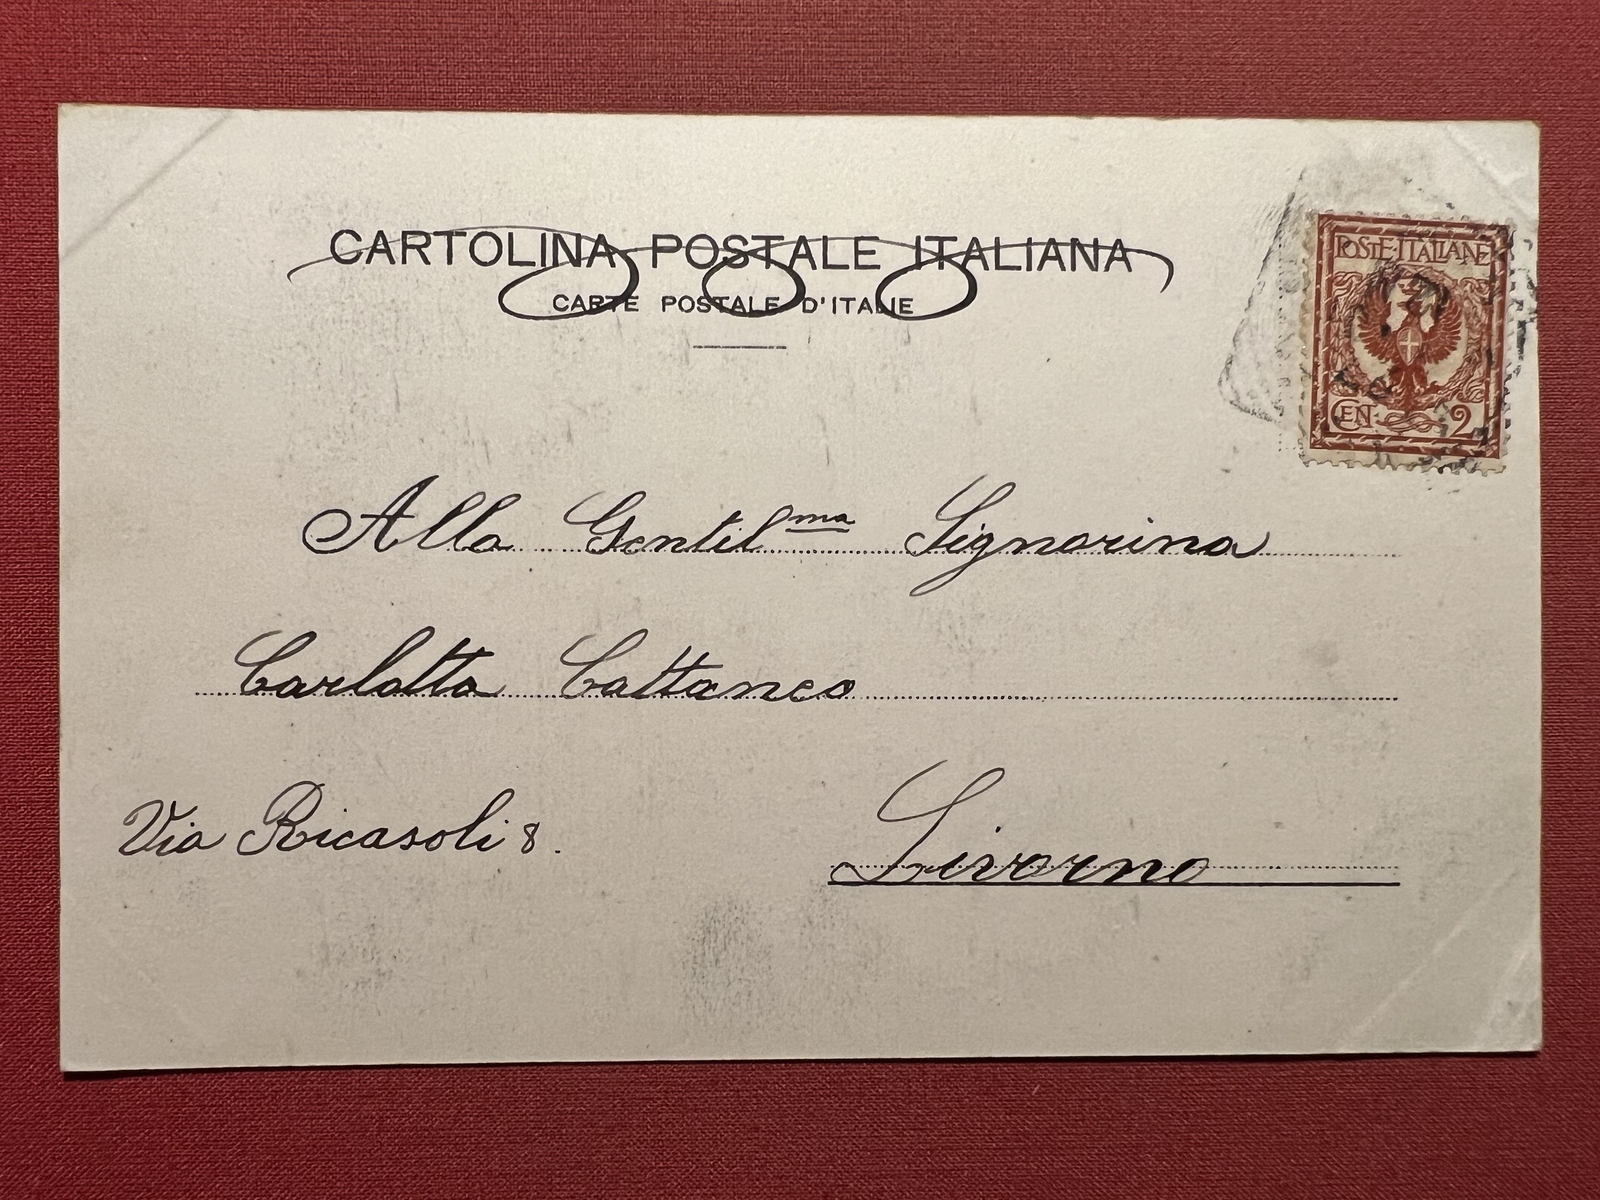 CARTOLINA POSTALE ITALIANA
CARTE POSTALE D'ITALIE
POSTE·ITALIANE
CEN· 2
Alla Gentilma Signorina
Carlotta Cattaneo
Via Ricasoli 8.
Livorno